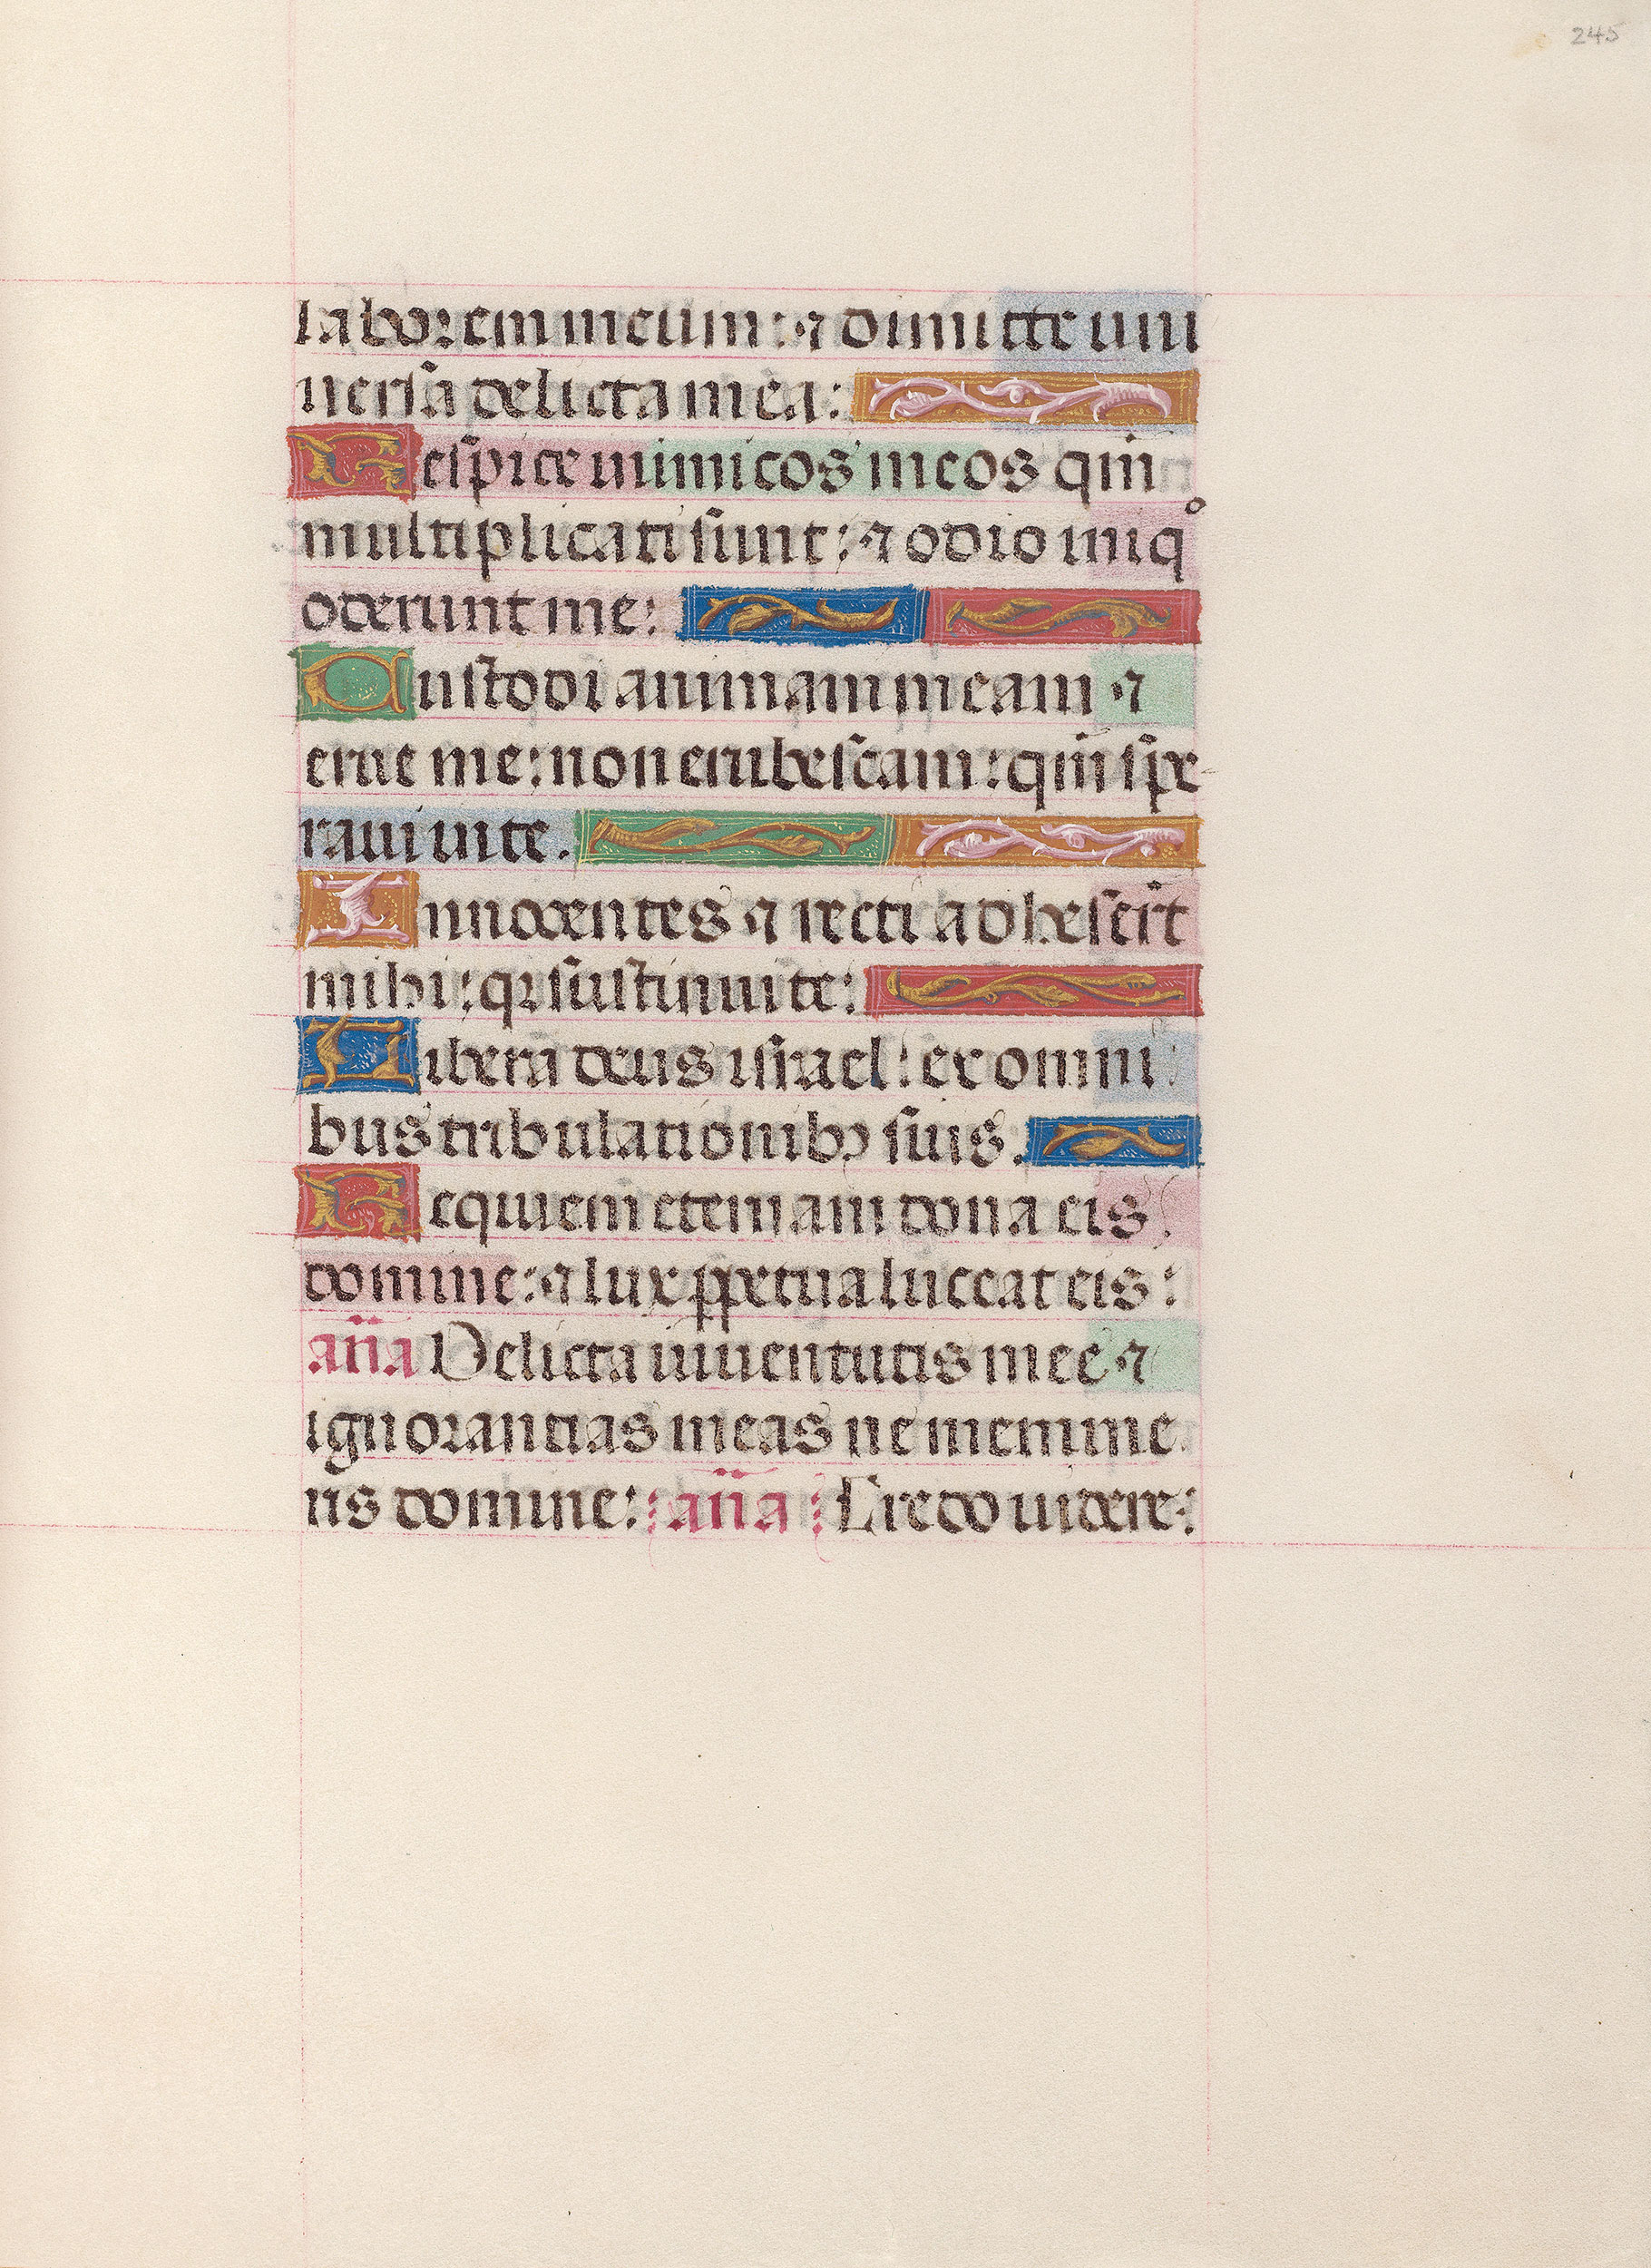 245
laborem meum: ⁊ dimitte uni
uersa delicta mea:
Respice inimicos meos qm̄
multiplicati sunt: ⁊ odio iniqº
oderunt me:
Custodi animam meam ⁊
erue me: non erubescam: qm̄ spe-
raui in te.
Innocentes ⁊ recti adheser̄t
mihi: qꝛ sustinui te:
Libera deus israel: ex omni
bus tribulationibꝫ suis.
Requiem eternam dona eis
domine: ⁊ lux ꝑpetua luceat eis:
an̄a Delicta iuuentutis mee ⁊
ignorantias meas ne memine
ris domine: an̄a Credo uidere: